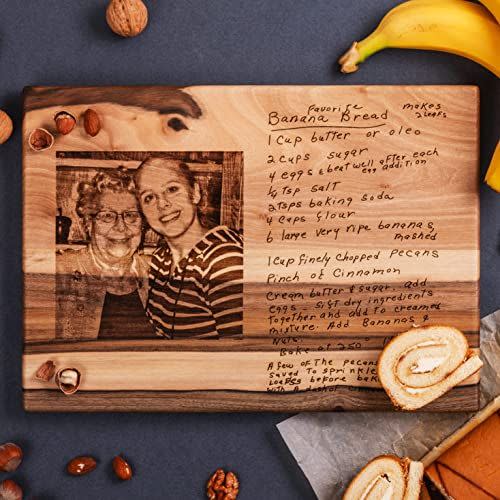 Favorite
Banana Bread makes 2 loafs
1 Cup butter or oleo
2 Cups sugar
4 eggs & beat well after each egg addition
1/4 Tsp salt
2 Tsps baking soda
4 Cups flour
6 large very ripe bananas, mashed
1 Cup Finely Chopped Pecans
Pinch of Cinnamon
Cream butter & sugar, add
eggs - Sift dry ingredients
together and add to creamed
mixture. Add Bananas &
Nuts.
Bake at 350
A few of the pecans
saved to sprinkle
Loafs before bak
with A dash of